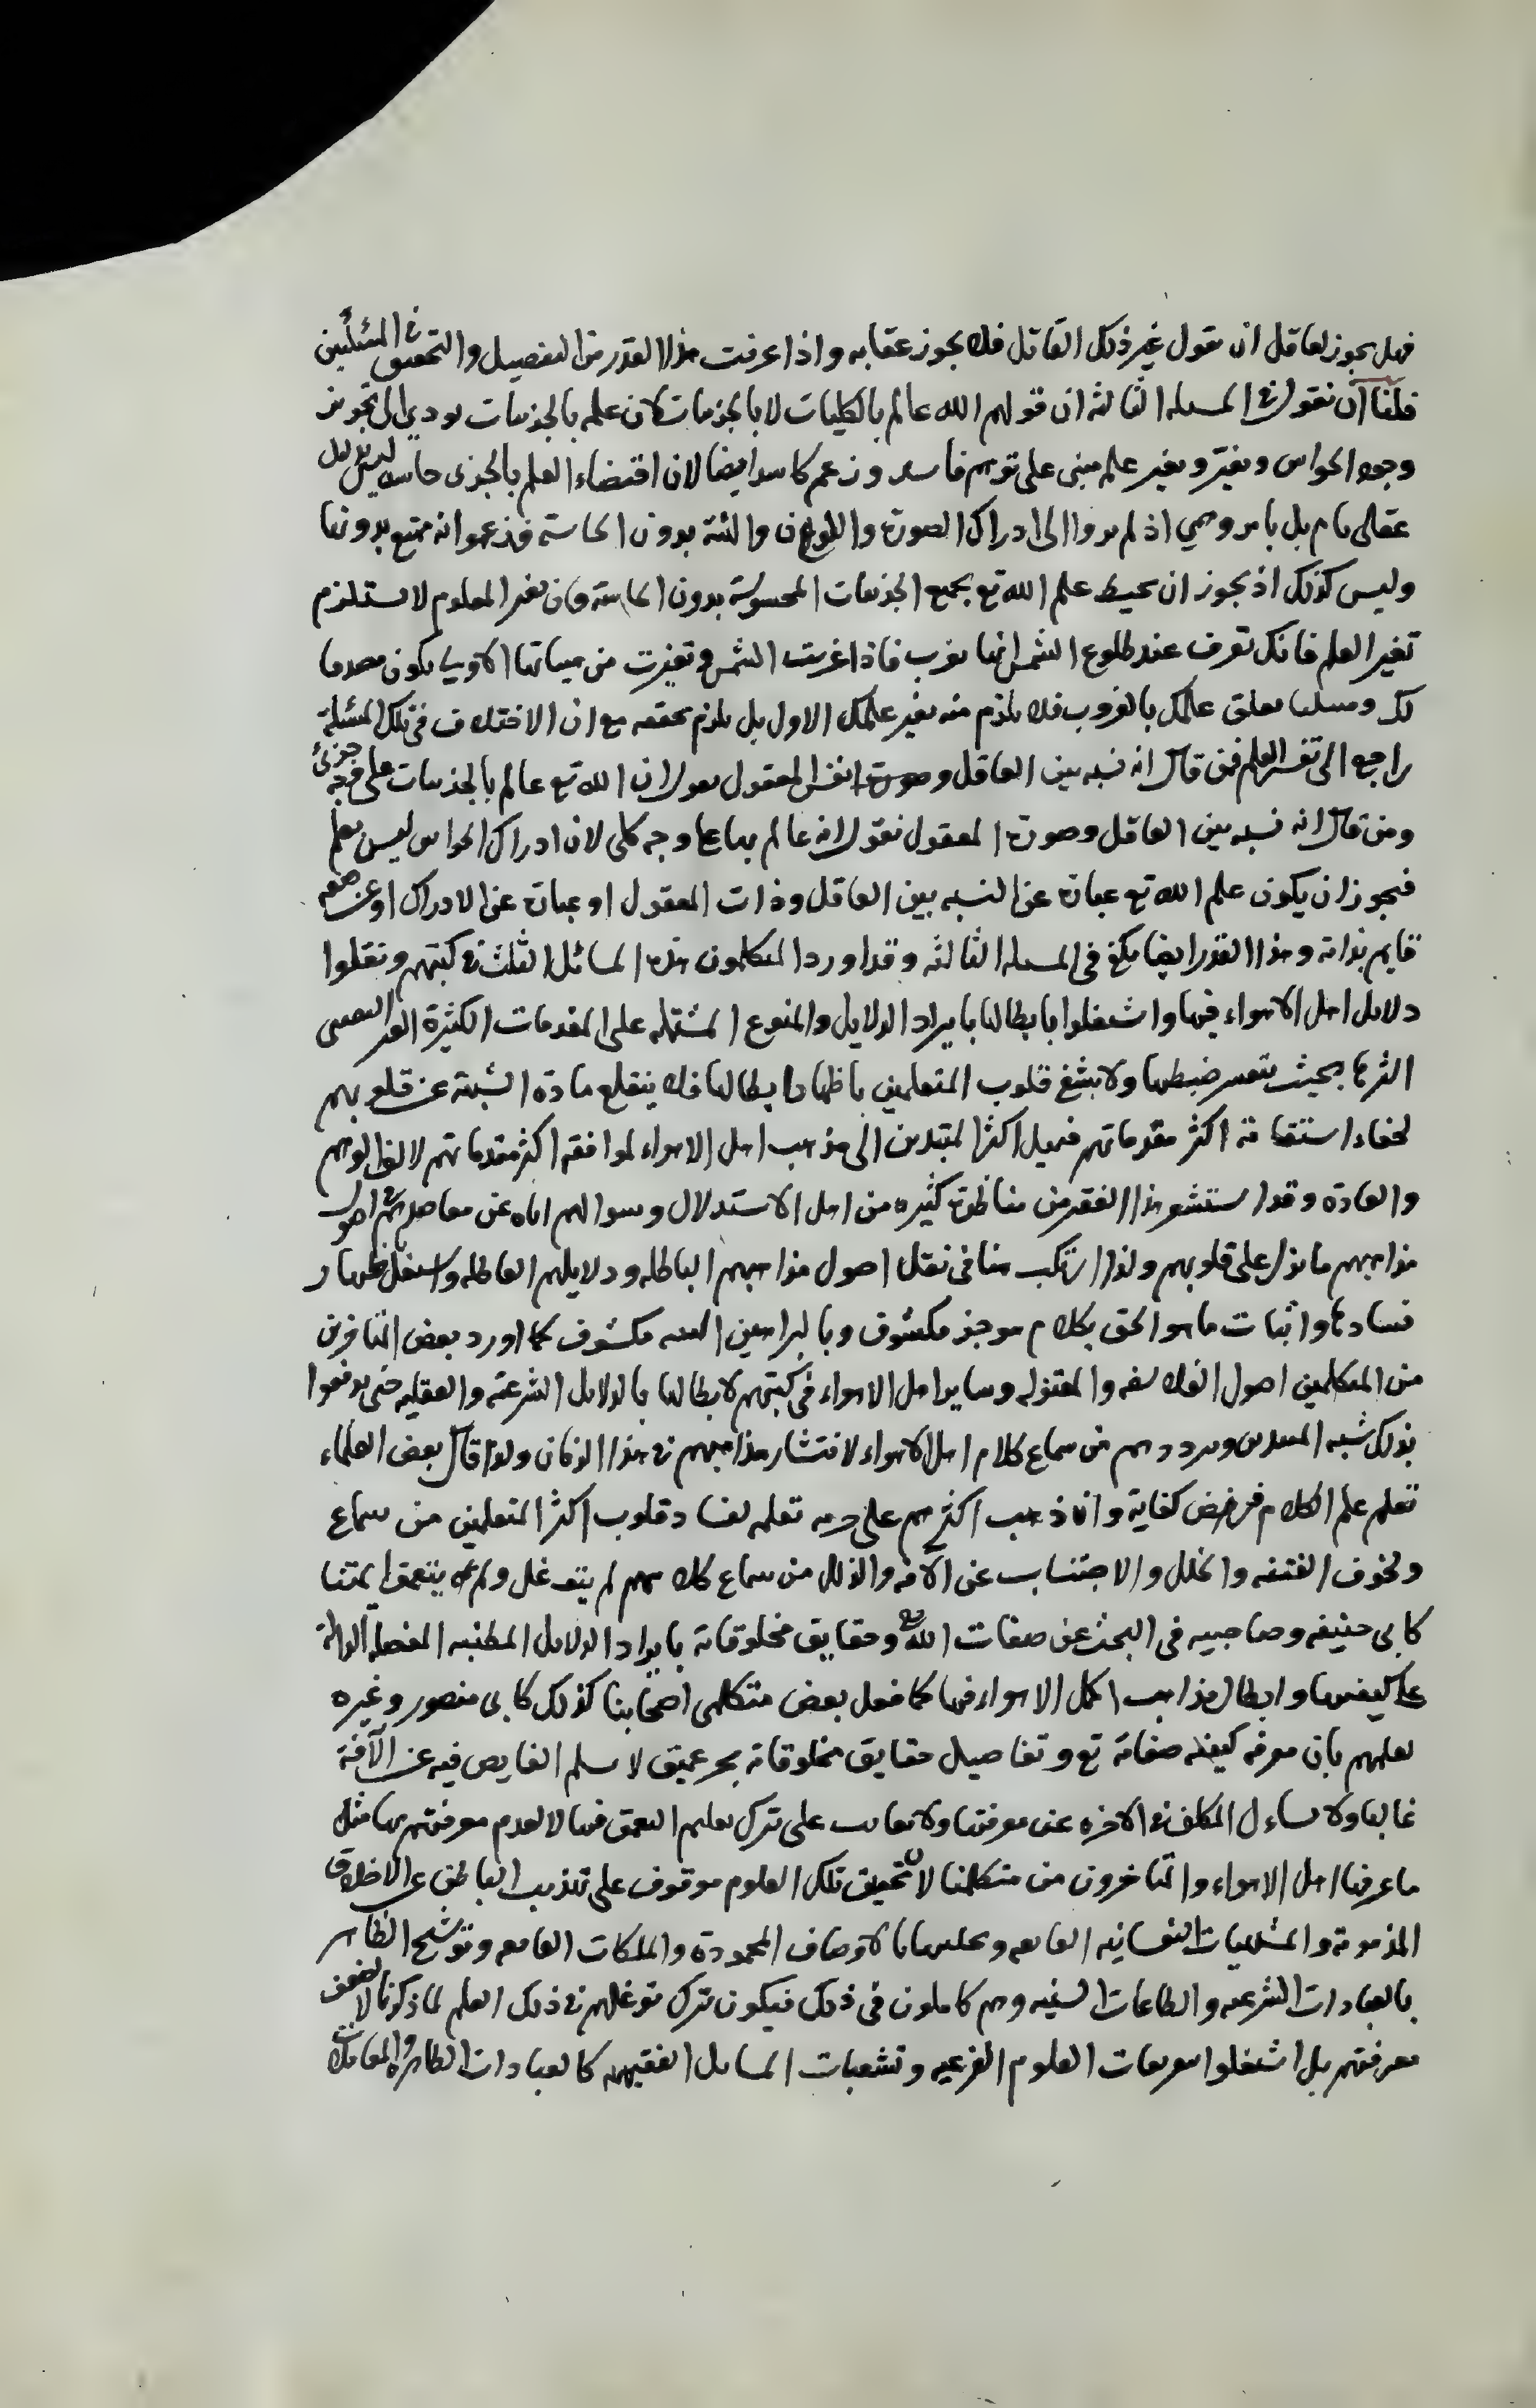 فهل يجوز لعاقل ان يقول غير ذلك القائل فلا يجوز عقابه واذا عرفت هذا القدر من التفصيل والتحقيق في المسئلتين
فلنا ان نقول في المسله الثالثه ان قولهم الله عالم بالكليات لا بالجزئيات لان علمه بالجزئيات يودي الى تجويز
وجود الحواس وتغير وتغير علمه مبنى على توهم فاسد وزعم كاسد ايضا لان اقتضاء العلم بالجزى حاسه ليس بدليل
عقلى تام بل بامر وهمي اذ لم يروا الى ادراك الصوت واللون بدون الحاسة فزعموا انه ممتنع بدونها
وليس كذلك اذ يجوز ان يحيط علم الله تع بجميع الجزئيات المحسوسة بدون الحاسة وان تغير المعلوم لا يستلزم
تغير العلم فانك تعرف عند طلوع الشمس انها تغرب فاذا غربت الشمس وتغيرت من هيئاتها الاولى يكون معدما
لك تعلق علمك بالغروب فلا يلزم منه تغير علمك الاول بل يلزم تحققه مع ان الاختلاف في تلك المسئلة
راجع الى تفسير العلم فمن قال انه نسبه بين العاقل ونفس المعقول يقول ان الله تع عالم بالجزئيات على وجه جزئي
ومن قال انه نسبه بين العاقل وصورة المعقول نقول انه عالم بها على وجه كلى لان ادراك الحواس ليس بعلم
فيجوز ان يكون علم الله تع عبارة عن النسبه بين العاقل وذات المعقول او عبارة عن الادراك او عن صفه
قايم بذاته وهذا القدر ايضا يكفي في المسله الثالثه وقد اورد المتكلمون هذه المسائل الثلث في كتبهم ونقلوا
دلايل اهل الاهواء فيها واشتغلوا بابطالها بايراد الدلايل والمنوع المشتمله على المقدمات الكثيرة الغير اليقينى
اكثرها بحيث يتعسر ضبطها ولا يشفي قلوب المتعلمين باظهار ابطالها فلا ينقلع مادة الشبهة عن قلوبهم
لخفاء استقامة اكثر مقدماتهم فيميل اكثر المبتدين الى مذهب اهل الاهواء لموافقه اكثر مقدماتهم الوهم
والعادة وقد استشعر هذا الفقير من مناظرة كثيره من اهل الاستدلال وسوالهم اياه عن مقاصدهم في اصول
مذاهبهم ما نزل على قلوبهم ولذا ارتكب هنا في نقل اصول مذاهبهم الباطله ودلايلهم العاطله واشتغل باظهار
فسادها واثبات ما هو الحق بكلام موجز مكشوف وبالبراهين مكشوف كما اورد بعض المتاخرين
من المتكلمين اصول الفلاسفه والمعتزله وساير اهل الاهواء في كتبهم لابطالها بالدلايل الشرعيه والعقليه حتى يدفعوا
بذلك شبه المبتدين وترددهم من سماع كلام اهل الاهواء لانتشار مذاهبهم في هذا الزمان ولذا قال بعض العلماء
تعلم علم الكلام فرض كفاية وان ذهب اكثرهم على حرمه تعلمه لفساد قلوب اكثر المتعلمين من سماع
ولخوف الفتنه والخلل والاجتناب عن الآفه والزلل من سماع كلامهم لم يتوغل ولم يتعمق ائمتنا
كابى حنيفه وصاحبيه في البحث عن صفات الله تع وحقايق مخلوقاته بايراد الدلايل المطنبه المفصلة الدالة
على كيفيتها وابطال مذاهب اهل الاهواء فيها كما فعل بعض متكلمى اصحابنا كذلك كابى منصور وغيره
لعلمهم بان معرفه كيفيه صفاته تع وتفاصيل حقايق مخلوقاته بحر عميق لا يسلم الغايص فيه عن الآفة
غالبا ولا يسأل المكلف في الاخره عن معرفتها ولا يعاتب على ترك تعليم التعمق فيها لا لعدم معرفتهم بها مثل
ما عرفها اهل الاهواء والمتاخرون من متكلمنا لان تحقيق تلك العلوم موقوف على تهذيب الباطن عن الاخلاق
المذمومة والمشتهيات النفسانيه وتحليتها بالاوصاف المحمودة والملكات وتوشيح الظاهر
بالعبادات الشرعيه والطاعات السنيه وهم كاملون في ذلك فيكون ترك توغلهم في ذلك العلم لما ذكرنا لا لضعف
معرفتهم بل اشتغلوا العلوم الفرعيه وتشعبات المسايل الفقهيه كالعبادات الظاهرة والمعاملات